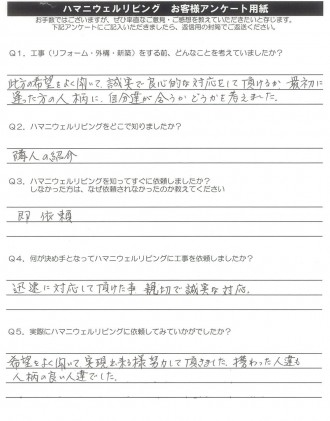 ハマニウェルリビング　お客様アンケート用紙
お手数ではございますが、ぜひ率直なご意見・ご感想を教えていただきたいと存じます。
下記アンケートにご記入いただきましたら、返信用の封筒でご返送ください。
Q1、工事（リフォーム・外構・新築）をする前、どんなことを考えていましたか？
此方の希望をよく聞いて、誠実で良心的な対応をして頂けるか 最初に
逢った方の人柄に、自分達が合うかどうかを考えました。
Q2、ハマニウェルリビングをどこで知りましたか？
隣人の紹介
Q3、ハマニウェルリビングを知ってすぐに依頼しましたか？
しなかった方は、なぜ依頼されなかったのか教えてください
即依頼
Q4、何が決め手となってハマニウェルリビングに工事を依頼しましたか？
迅速に対応して頂けた事 親切で誠実な対応。
Q5、実際にハマニウェルリビングに依頼してみていかがでしたか？
希望をよく聞いて、実現出来る様努力して頂きました、携わった人達も
人柄の良い人達でした。